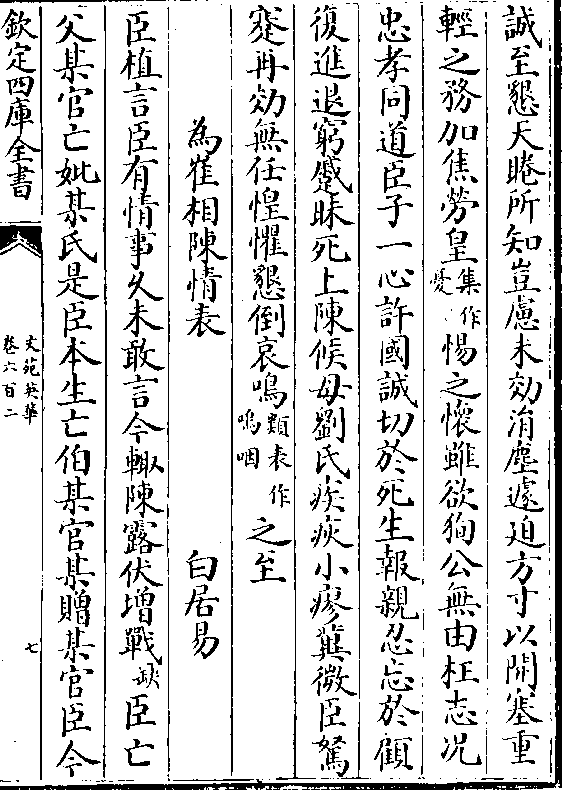 誠至懇天睠所知豈慮未効涓塵遽迫方寸以開塞重
輕之務加焦勞皇集作憂惕之懷雖欲狥公無由枉志况
忠孝同道臣子一心許國誠切於死生報親忍忘於顧
復進退窮蹙昧死上陳候母劉氏疾疢小瘳冀微臣駑
蹇再効無任惶懼懇倒哀鳴類表作嗚咽之至
為崔相陳情表 白居易
臣植言臣有情事久未敢言今輙陳露伏増戰缺臣亡
父某官亡妣某氏是臣本生亡伯某官某贈某官臣今
欽定四庫全書
文苑英華
卷六百二
七